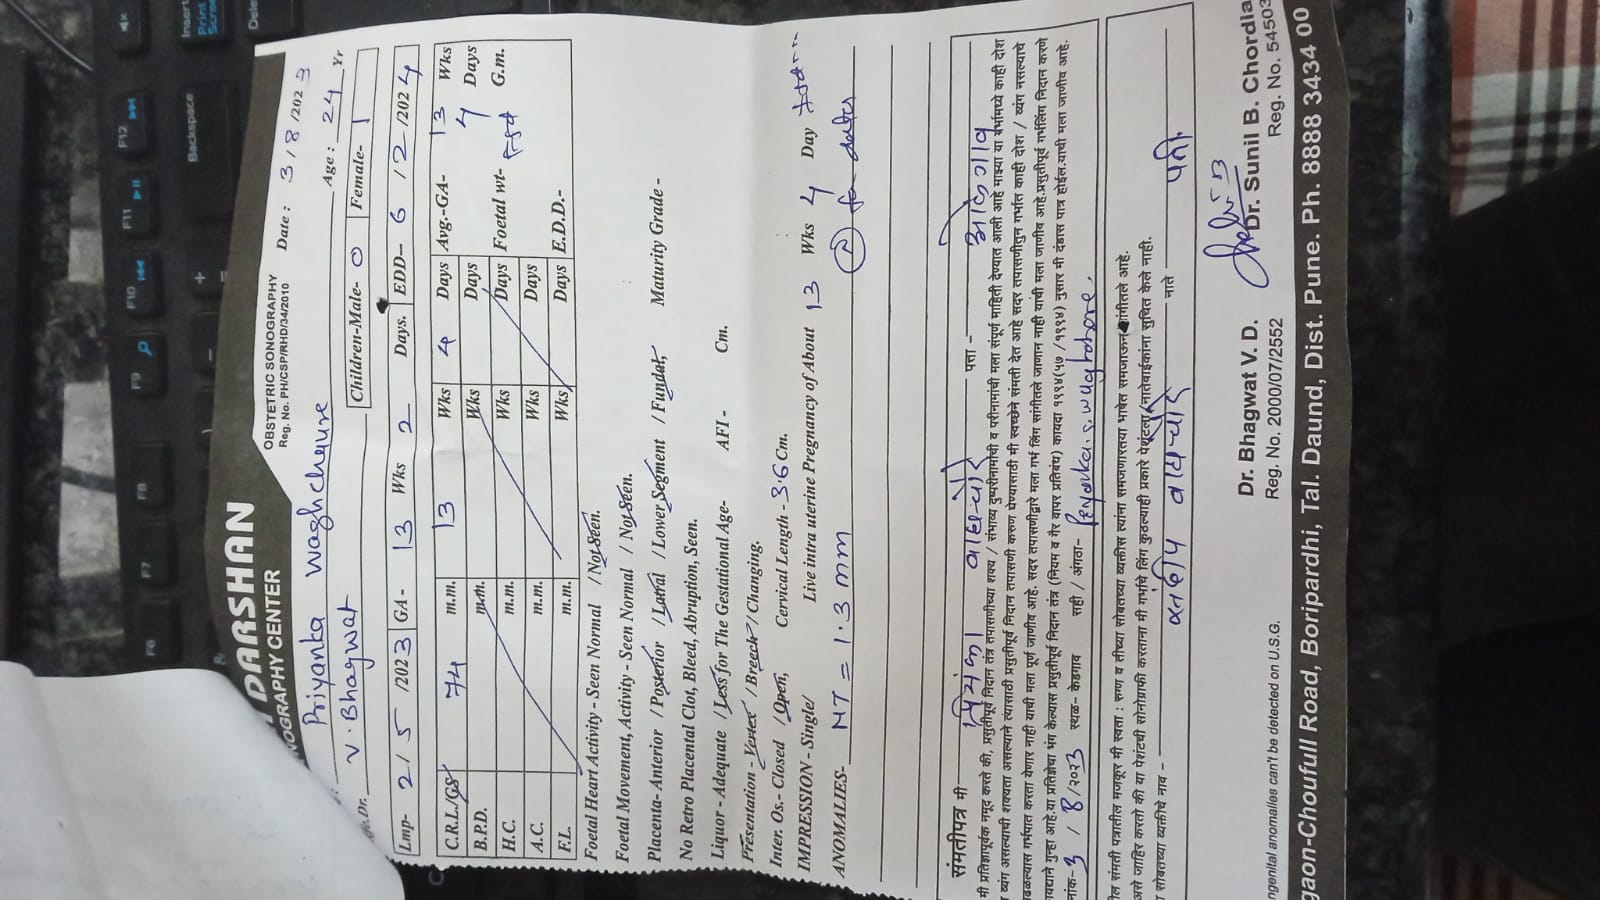 DARSHAN
NOGRAPHY CENTER
OBSTETRIC SONOGRAPHY
Reg. No. PH/CSP/RHD/34/2010
Date : 3 / 8 /2023
Priyanka Waghchaure Age : 24 Yr
Dr. V. Bhagwat Children-Male- 0 Female- 1
Lmp- 2 / 5 /2023 GA- 13 Wks 2 Days. EDD- 6 / 2 /2024
C.R.L/GS 74 m.m. 13 Wks 4 Days Avg.-GA- 13 Wks
B.P.D. m.m. Wks Days 4 Days
H.C. m.m. Wks Days Foetal wt- G.m.
A.C. m.m. Wks Days
F.L. m.m. Wks Days E.D.D.-
Foetal Heart Activity - Seen Normal / Not Seen.
Foetal Movement, Activity - Seen Normal / Not Seen.
Placenta- Anterior / Posterior / Latral / Lower Segment / Fundal, Maturity Grade -
No Retro Placental Clot, Bleed, Abruption, Seen.
Liquor - Adequate / Less for The Gestational Age- AFI - Cm.
Presentation - Vertex / Breech / Changing.
Inter. Os.- Closed / Open, Cervical Length - 3.6 Cm.
IMPRESSION - Single/ Live intra uterine Pregnancy of About 13 Wks 4 Day
ANOMALIES- NT = 1.3 mm
संमतीपत्र मी प्रियंका वाघचौरे पत्ता -
मी प्रतिज्ञापूर्वक नमूद करते की, प्रसुतीपूर्व निदान तंत्र तपासणीच्या शक्य / संभाव्य दुष्परीनामांची व परीनामांची मला संपूर्ण माहिती देण्यात आली आहे माझ्या या गर्भामध्ये काही दोश
व्यंग असल्याची शक्यता असल्याने त्यासाठी प्रसुतीपूर्व निदान तपासणी करुण घेण्यासाठी मी स्वच्छेने संमती देत आहे सदर तपासणीतुन गर्भात काही दोश / व्यंग नसल्याचे
आढळल्यास गर्भपात करता येणार नाही याची मला पूर्ण जाणीव आहे. सदर तपासणीद्वारे मला गर्भ लिंग सांगीतले जाणान नाही याची मला जाणीव आहे.प्रसुतीपूर्व गर्भलिंग निदान करणे
कायद्याने गुन्हा आहे.या प्रतिज्ञेचा भंग केल्यास प्रसुतीपूर्व निदान तंत्र (नियम व गैर वापर प्रतिबंध) कायदा १९९४(५७ /१९९४) नुसार मी दंडास पात्र होईल.याची मला जाणीव आहे.
नांक- 3 / 8 /2023 स्थळ - केडगाव सही / अंगठा- Priyanka.S.waghchore.
ील संमती पत्रातील मजकूर मी स्वता : रुग्ण व तीच्या सोबतच्या व्यक्तीस त्यांना समजणारतया भाषेत समजाऊन सांगीतले आहे.
असे जाहिर करतो की या पेशंटची सोनोग्राफी करताना मी गर्भाचे लिंग कुठल्याही प्रकारे पेशंटला/नातेवाईकांना सुचित केले नाही.
सोबतच्या व्यक्तीचे नाव - नाते पती.
Dr. Bhagwat V. D. Dr. Sunil B. Chordia
Reg. No. 2000/07/2552 Reg. No. 54503
ngenital anomalies can't be detected on U.S.G.
gaon-Choufull Road, Boripardhi, Tal. Daund, Dist. Pune. Ph. 8888 3434 00
F6
F7
F8
F9
F10
F11
F12
Backspace
Insert
Print
Scree
Dele